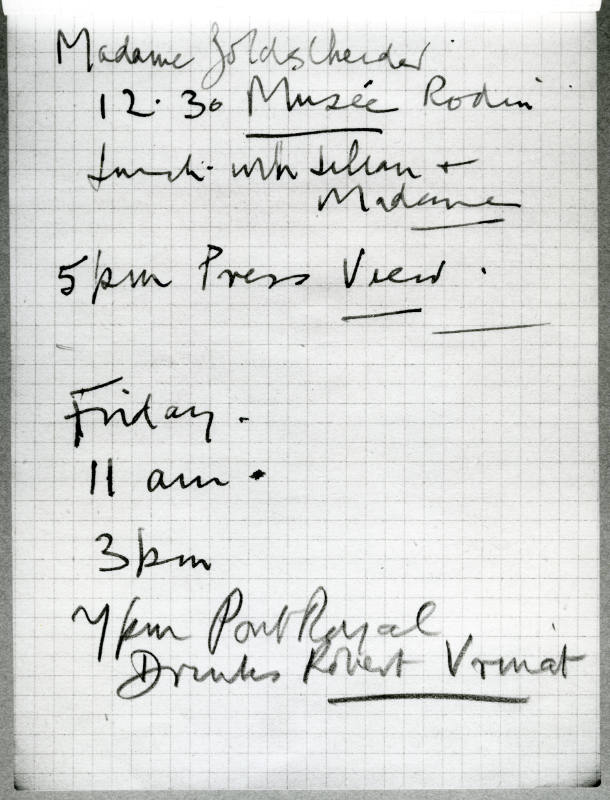 Madame Goldscheider
12.30 Musée Rodin
Lunch with Lilian +
Madame
5pm Press View.
Friday.
11 am.
3pm
7pm Pont Royal
Drinks Robert